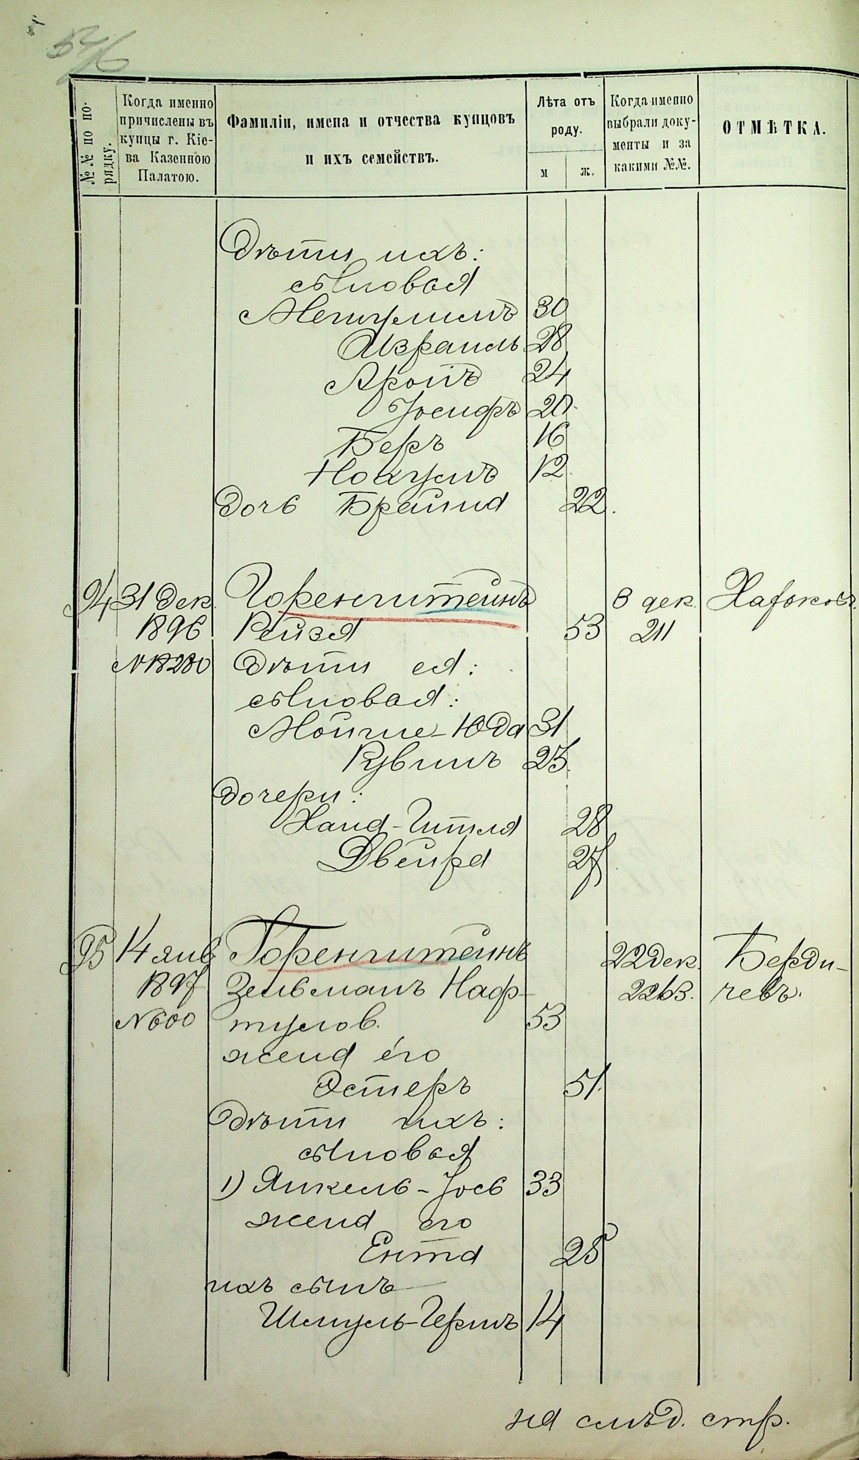 №№ по по-
рядку.
Когда именно
причислены въ
купцы г. Кіе-
ва Казенною
Палатою.
Фамиліи, имена и отчества купцовъ
и ихъ семействъ.
Лѣта отъ
роду.
м
ж.
Когда именно
выбрали доку-
менты и за
какими №№.
ОТМѢТКА.
Дѣти ихъ:
сыновья
Мешулимъ 30
Израиль 28
Аронъ 24
Іосифъ 20
Беръ 16
Нохумъ 12
дочь Брайна 22.
94 31 дек. Горенштейнъ 8 дек. Харьковъ.
1896 Рейзя 53 211
№ 18280 Дѣти ея:
сыновья:
Мойше-Юда 31
Рувинъ 23.
дочери:
Хана-Гитля 28
Двейра 27
95 14 янв Горенштейнъ 22 дек. Берди-
1897 Зельманъ Наф- 2263. чевъ.
№ 600 тулов. 53
жена его
Эстеръ 51.
Дѣти ихъ:
сыновья
1) Янкель-Іось 33
жена его
Ента 25
ихъ сынъ
Шмуль-Гершъ 14
на слѣд. стр.